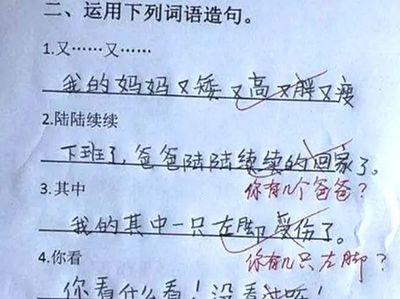 二、运用下列词语造句。
1.又……又……
我的妈妈又矮又高又胖又瘦
2.陆陆续续
下班了,爸爸陆陆续续的回家了。
3.其中
你有几个爸爸？
我的其中一只左脚受伤了。
4.你看
你有几只左脚？
你看什么看！没看过